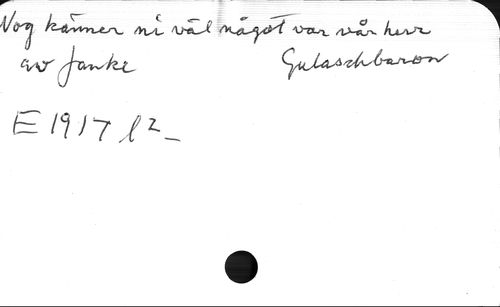 Nog känner ni väl något var vår herr
av Janke Gulaschbaron
E 1917 l2_